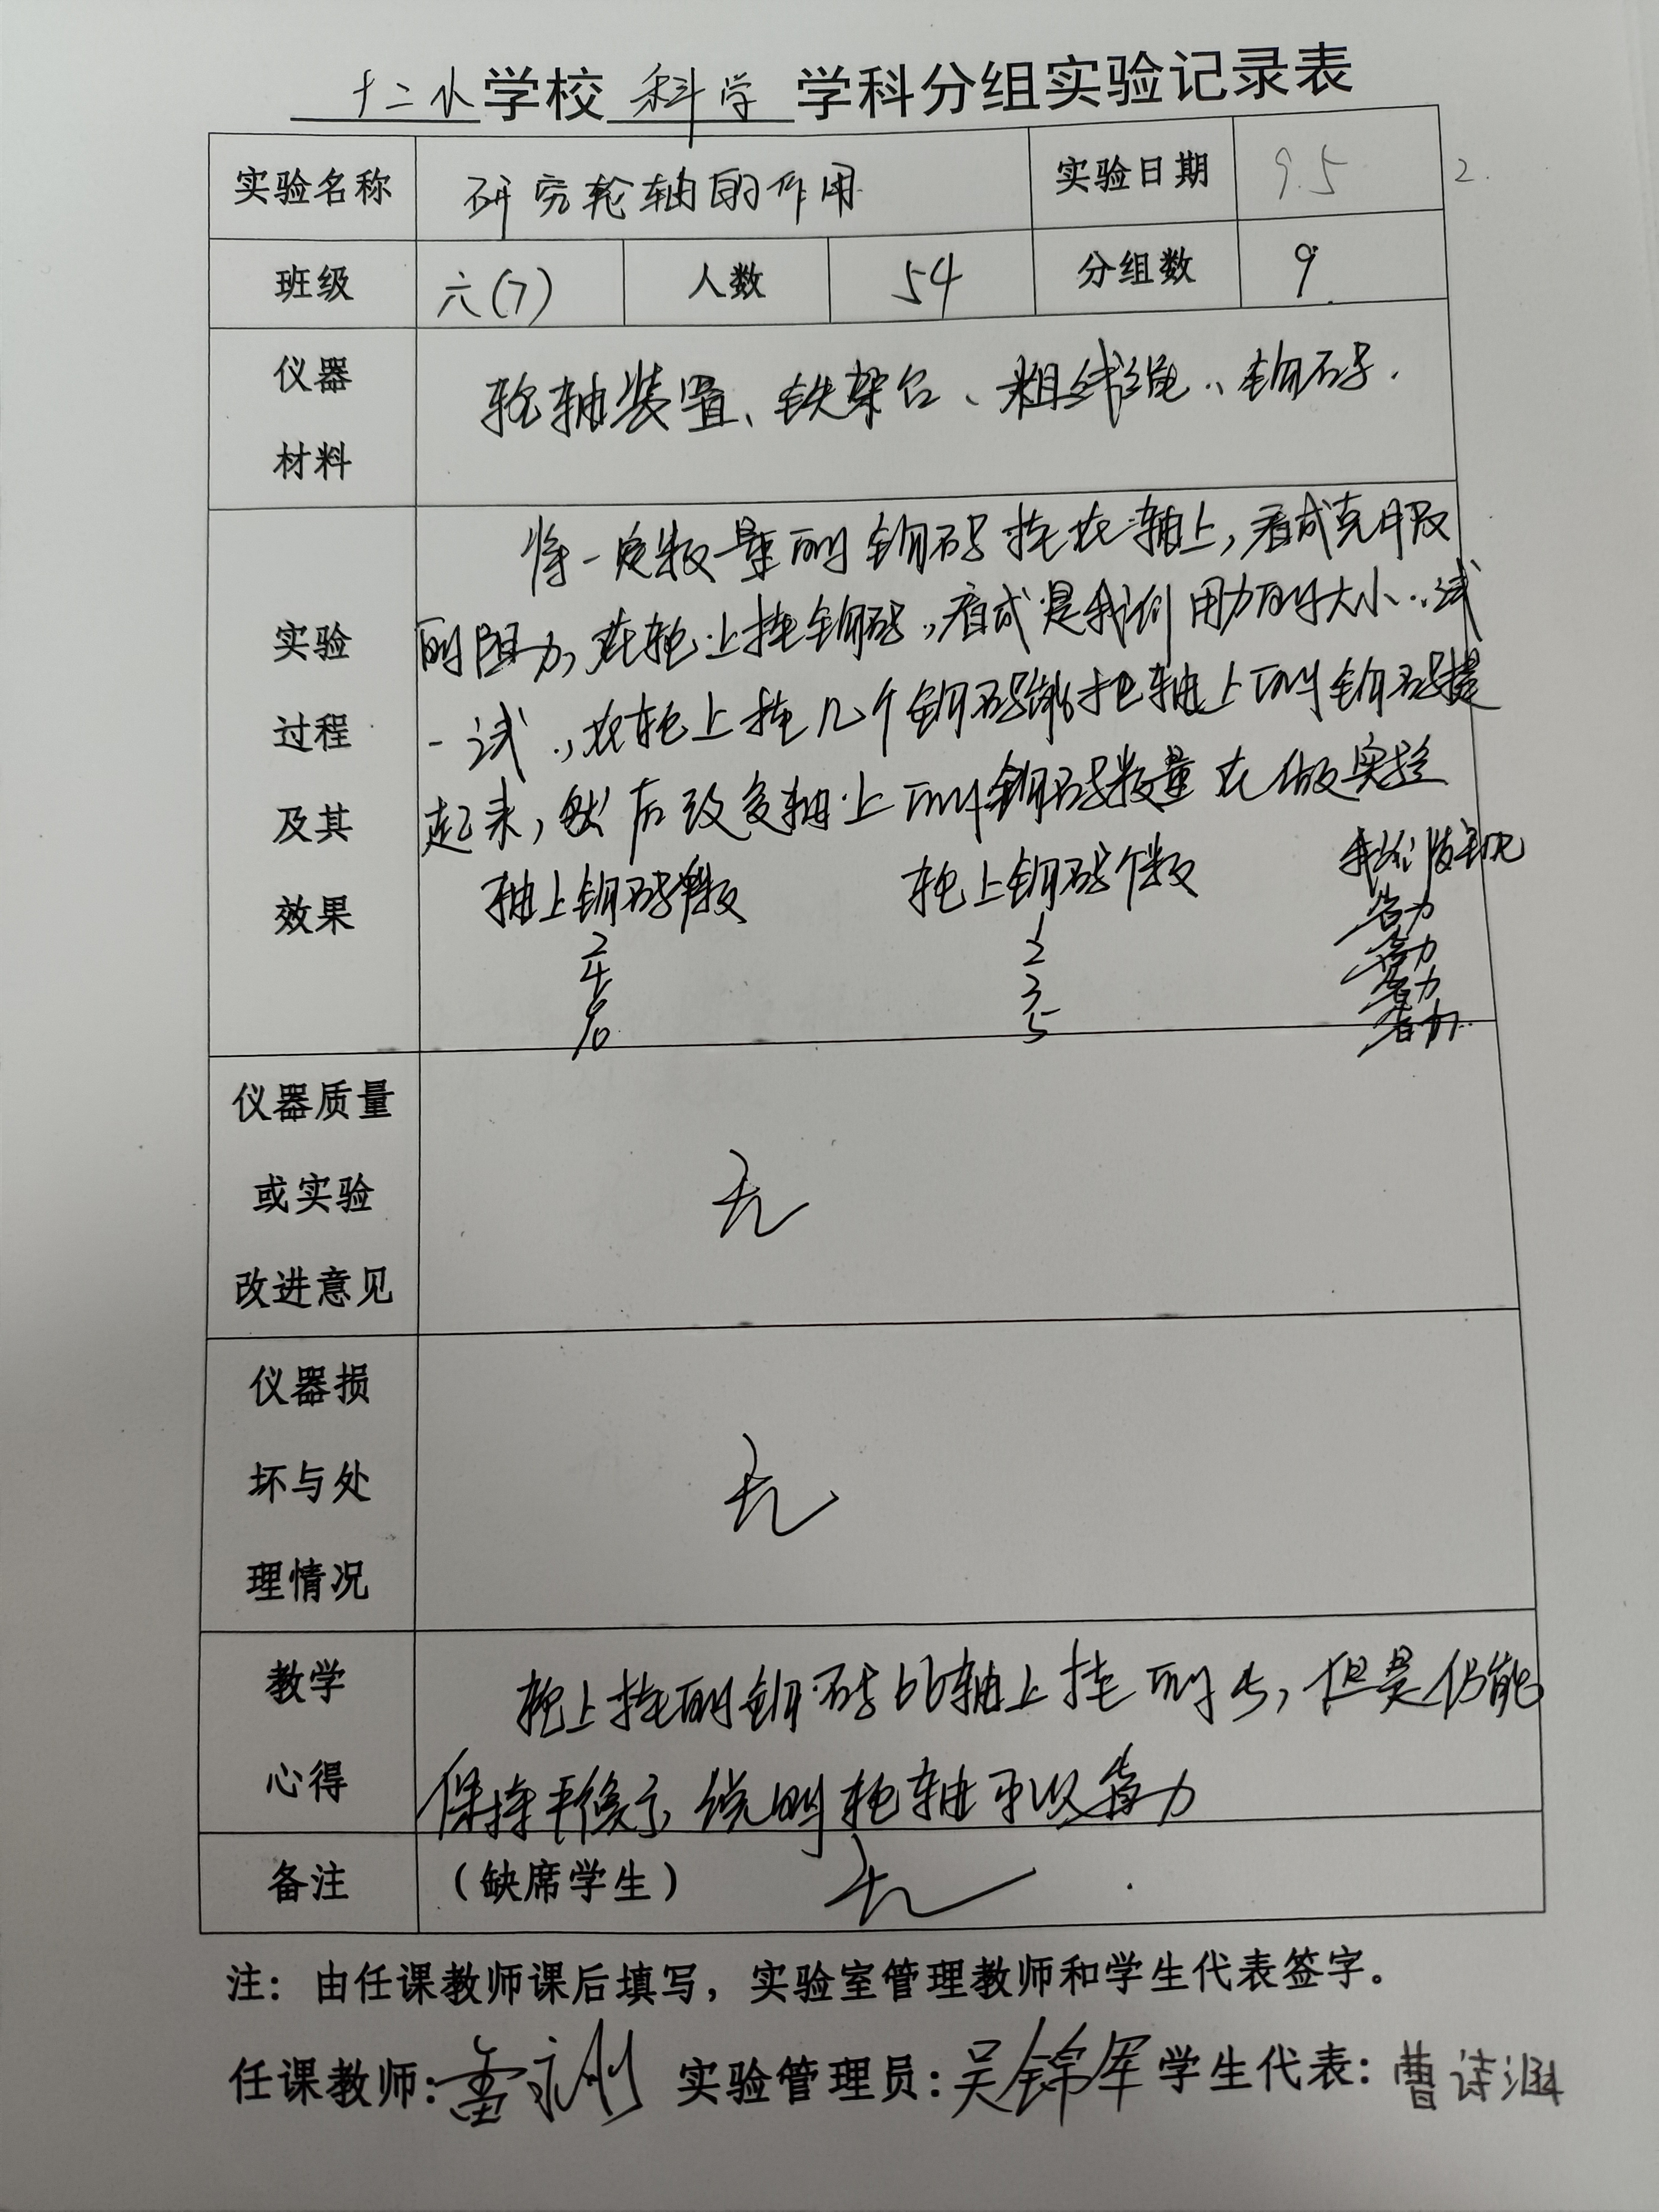 十二小学校科学学科分组实验记录表
实验名称 研究轮轴的作用 实验日期 9.5 2.
班级 六(7) 人数 54 分组数 9
仪器
材料
轮轴装置、铁架台、粗线绳、钩码.
实验
过程
及其
效果
将一定数量的钩码挂在轴上,看成克服
的阻力,在轮上挂钩码,看成是我们用力的大小.试
一试,在轮上挂几个钩码能把轴上的钩码提
起来,然后改变轴上的钩码数量在做实验
轴上钩码个数 轮上钩码个数 我们发现
2 1 省力
4 2 省力
6 3 省力
10 5 省力
仪器质量
或实验
改进意见
无
仪器损
坏与处
理情况
无
教学
心得
轮上挂的钩码比轴上挂的少,但是仍能
保持平衡,说明轮轴可以省力
备注 (缺席学生) 无
注:由任课教师课后填写,实验室管理教师和学生代表签字。
任课教师: 实验管理员:吴锦军 学生代表:曹诗涵